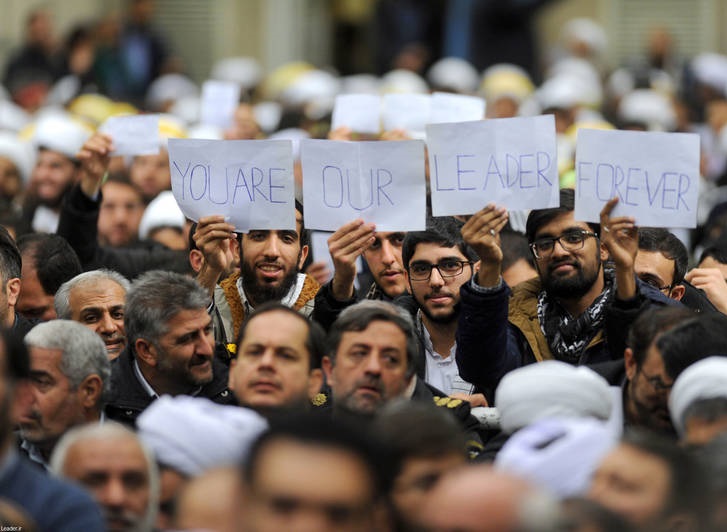 YOU ARE OUR LEADER FOREVER
Leader.ir